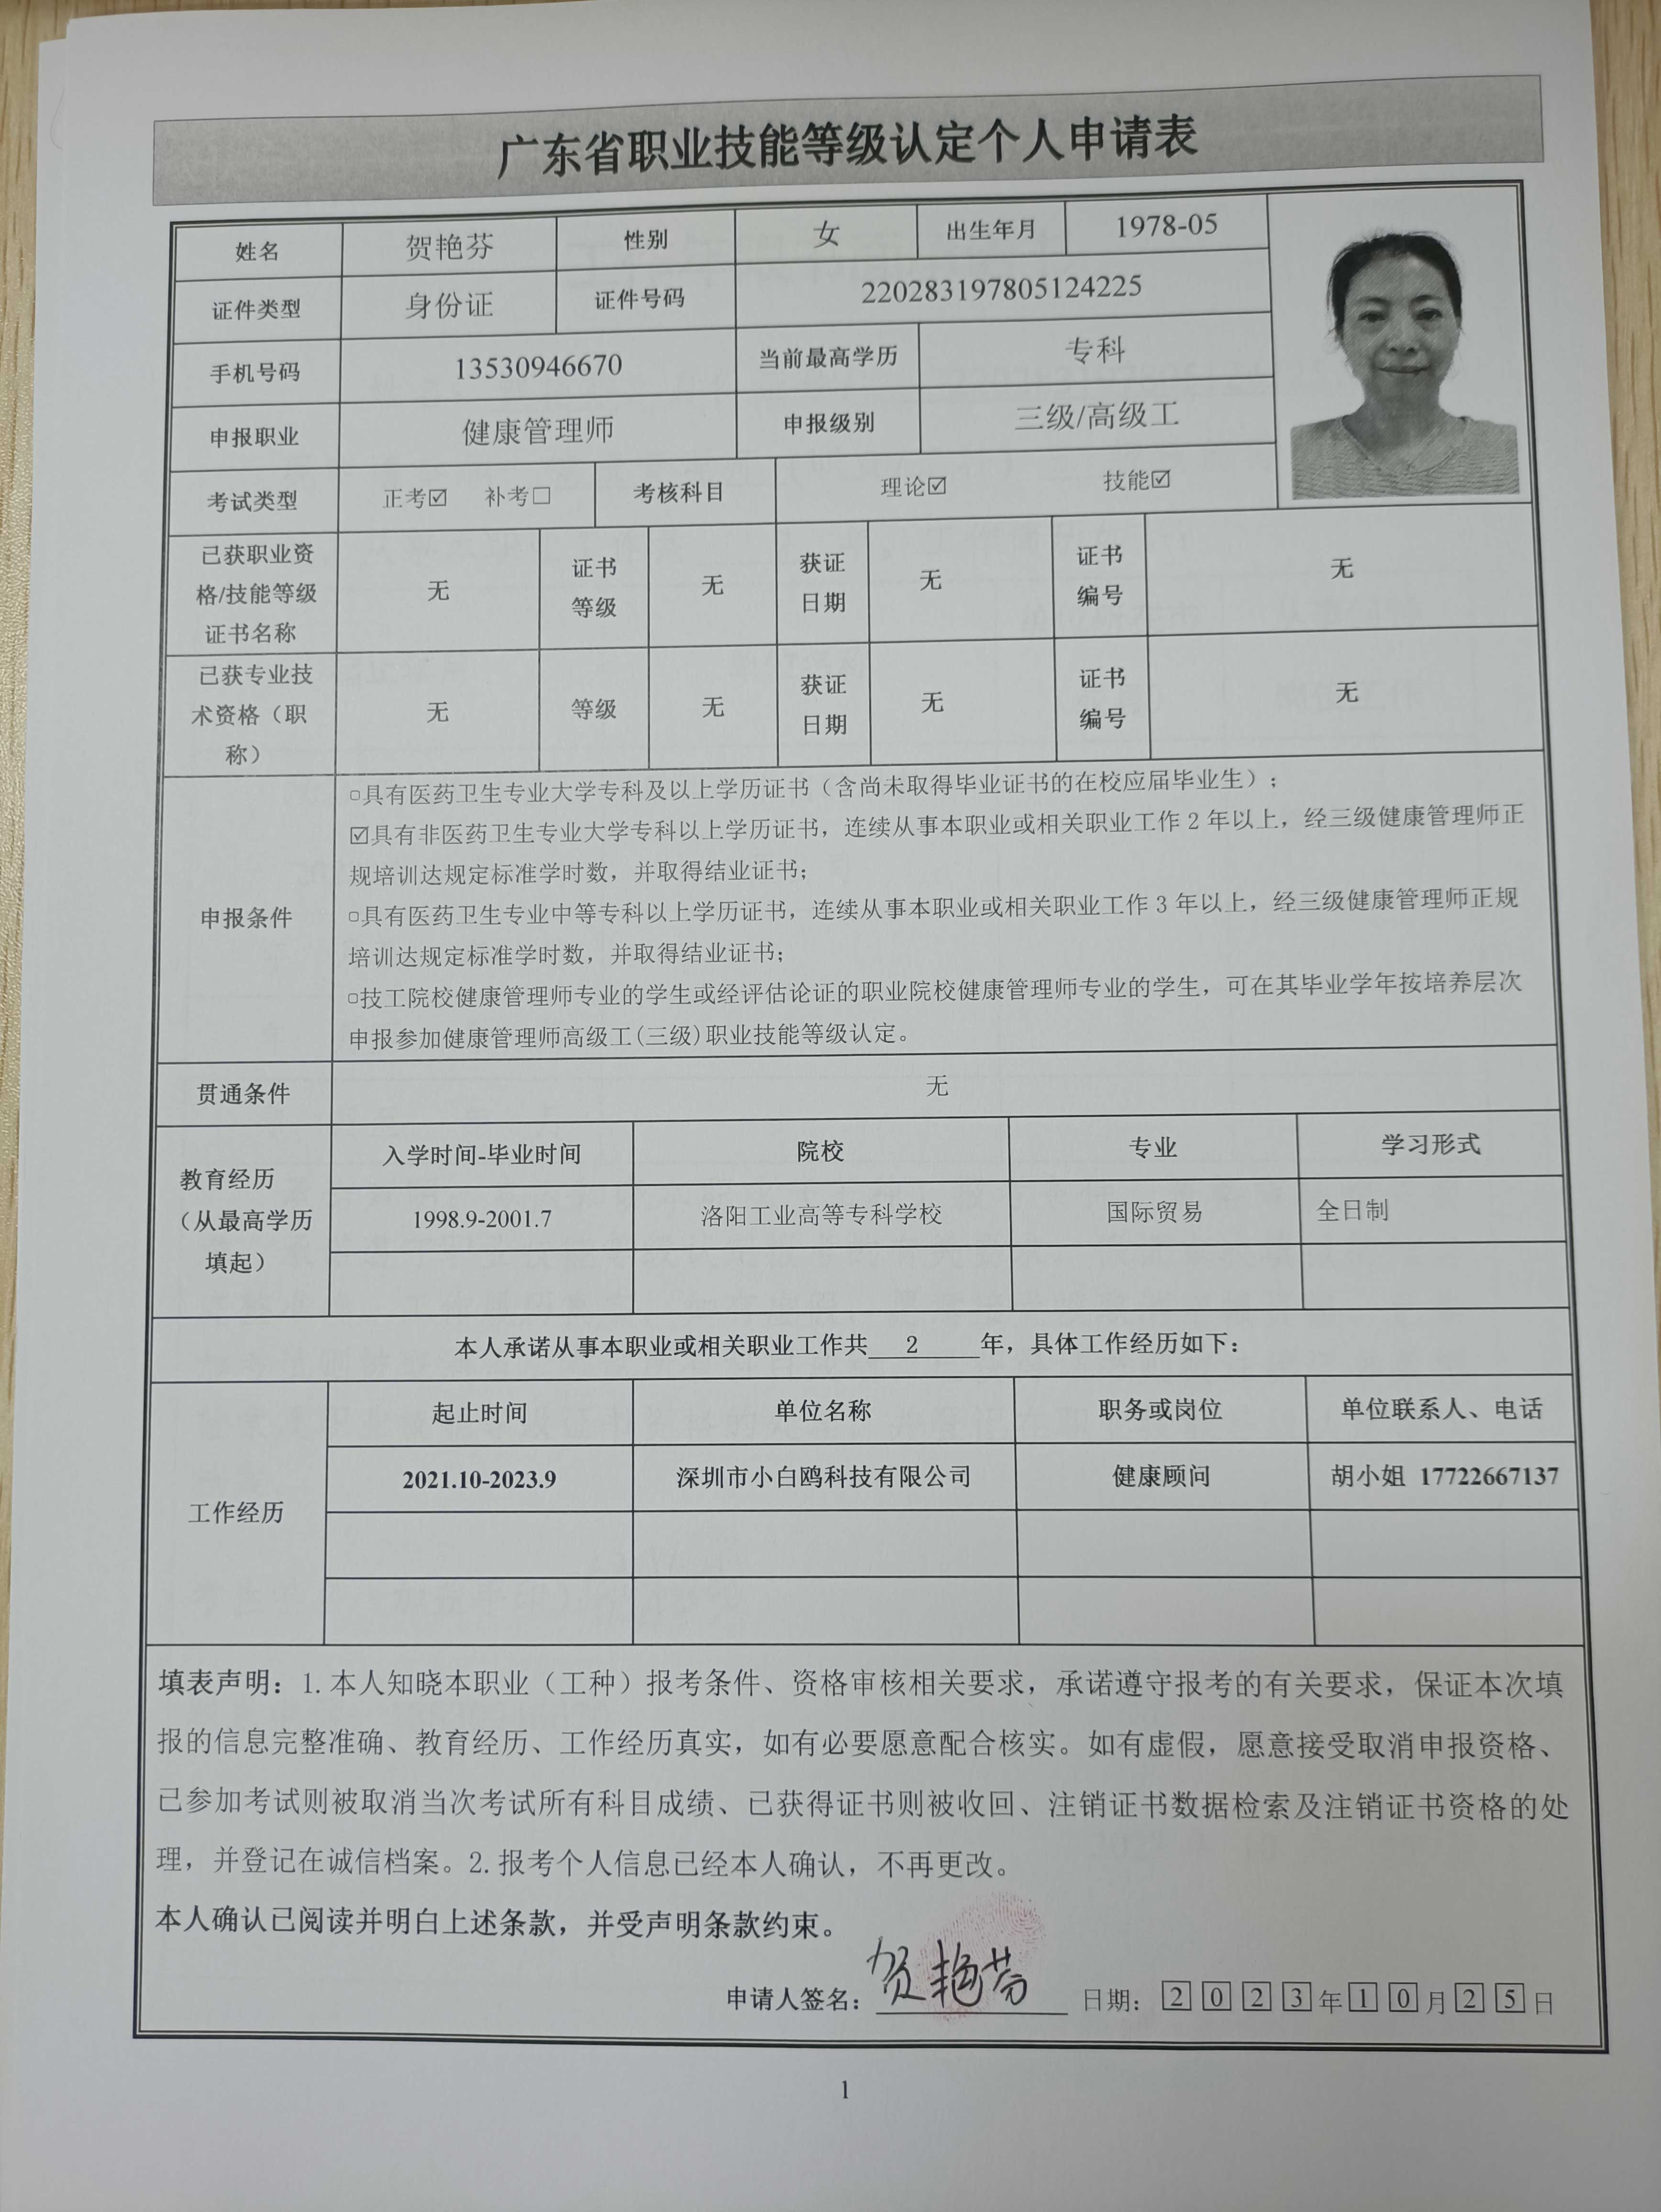 广东省职业技能等级认定个人申请表
姓名 贺艳芬 性别 女 出生年月 1978-05
证件类型 身份证 证件号码 220283197805124225
手机号码 13530946670 当前最高学历 专科
申报职业 健康管理师 申报级别 三级/高级工
考试类型 正考☑ 补考☐ 考核科目 理论☑ 技能☑
已获职业资
格/技能等级
证书名称
无
证书
等级
无
获证
日期
无
证书
编号
无
已获专业技
术资格（职
称）
无
等级
无
获证
日期
无
证书
编号
无
申报条件
□具有医药卫生专业大学专科及以上学历证书（含尚未取得毕业证书的在校应届毕业生）；
☑具有非医药卫生专业大学专科以上学历证书，连续从事本职业或相关职业工作 2 年以上，经三级健康管理师正
规培训达规定标准学时数，并取得结业证书；
□具有医药卫生专业中等专科以上学历证书，连续从事本职业或相关职业工作 3 年以上，经三级健康管理师正规
培训达规定标准学时数，并取得结业证书；
□技工院校健康管理师专业的学生或经评估论证的职业院校健康管理师专业的学生，可在其毕业学年按培养层次
申报参加健康管理师高级工(三级)职业技能等级认定。
贯通条件 无
教育经历
（从最高学历
填起）
入学时间-毕业时间 院校 专业 学习形式
1998.9-2001.7 洛阳工业高等专科学校 国际贸易 全日制
本人承诺从事本职业或相关职业工作共 2 年，具体工作经历如下：
工作经历
起止时间 单位名称 职务或岗位 单位联系人、电话
2021.10-2023.9 深圳市小白鸥科技有限公司 健康顾问 胡小姐 17722667137
填表声明：1.本人知晓本职业（工种）报考条件、资格审核相关要求，承诺遵守报考的有关要求，保证本次填
报的信息完整准确、教育经历、工作经历真实，如有必要愿意配合核实。如有虚假，愿意接受取消申报资格、
已参加考试则被取消当次考试所有科目成绩、已获得证书则被收回、注销证书数据检索及注销证书资格的处
理，并登记在诚信档案。2.报考个人信息已经本人确认，不再更改。
本人确认已阅读并明白上述条款，并受声明条款约束。
申请人签名：贺艳芬 日期：2023年10月25日
1